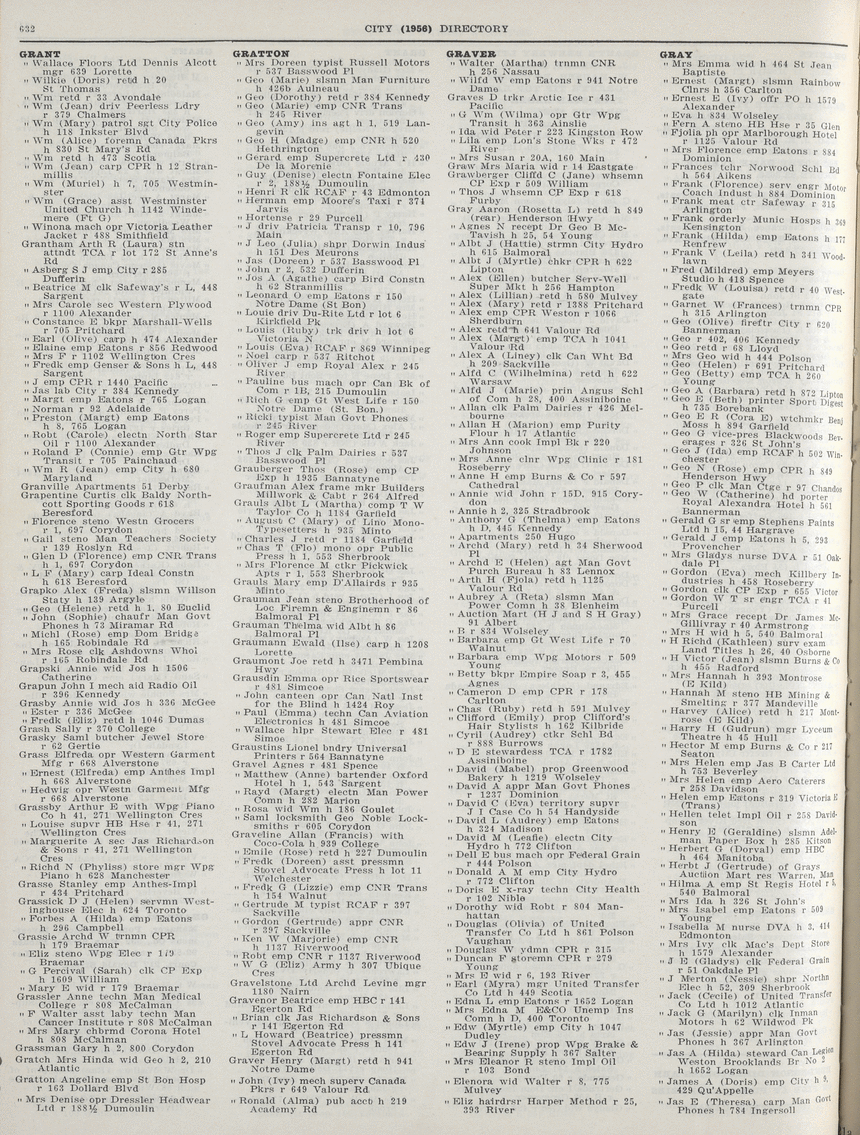 632
CITY (1956) DIRECTORY
GRANT
" Wallace Floors Ltd Dennis Alcott
mgr 639 Lorette
" Wilkie (Doris) retd h 20
St Thomas
" Wm retd r 33 Avondale
" Wm (Jean) driv Peerless Ldry
r 379 Chalmers
" Wm (Mary) patrol sgt City Police
h 118 Inkster Blvd
" Wm (Alice) foremn Cankx Pkrs
h 830 St Mary's Rd
" Wm retd h 473 Scotia
" Wm (Jean) carp CPR h 12 Stran-
millis
" Wm (Muriel) h 7, 705 Westmin-
ster
" Wm (Grace) asst Westminster
United Church h 1142 Winde-
mere (Ft G)
" Winona mach opr Victoria Leather
Jacket r 488 Smithfield
Grantham Arth R (Laura) stn
attndt TCA r lot 172 St Anne's
Rd
" Asberg S J emp City r 285
Dufferin
" Beatrice M clk Safeway's r L, 448
Sargent
" Mrs Carole sec Western Plywood
r 1100 Alexander
" Constance E bkpr Marshall-Wells
r 705 Pritchard
" Earl (Olive) carp h 474 Alexander
" Elaine emp Eatons r 856 Redwood
" Mrs F r 1102 Wellington Cres
" Fredk emp Genser & Sons h L, 448
Sargent
" J emp CPR r 1440 Pacific
" Jas lab City r 384 Kennedy
" Margt emp Eatons r 765 Logan
" Norman r 92 Adelaide
" Preston (Margt) emp Eatons
h 8, 765 Logan
" Robt (Carole) electn North Star
Oil r 1100 Alexander
" Roland P (Connie) emp Gtr Wpg
Transit r 705 Painchaud
" Wm R (Jean) emp City h 680
Maryland
Granville Apartments 51 Derby
Grapentine Curtis clk Baldy North-
cott Sporting Goods r 618
Beresford
" Florence steno Westn Grocers
r 1, 697 Corydon
" Gail steno Man Teachers Society
r 139 Roslyn Rd
" Glen D (Florence) emp CNR Trans
h 1, 697 Corydon
" L F (Mary) carp Ideal Constn
h 618 Beresford
Grapko Alex (Freda) slsmn Willson
Staty h 139 Argyle
" Geo (Helene) retd h 1, 80 Euclid
" John (Sophie) chaufr Man Govt
Phones h 73 Miramar Rd
" Michl (Rose) emp Dom Bridge
h 165 Robindale Rd
" Mrs Rose clk Ashdowns Whol
r 165 Robindale Rd
Grapski Annie wid Jos h 1506
Catherine
Grapun John I mech aid Radio Oil
r 396 Kennedy
Grasby Annie wid Jos h 336 McGee
" Ester r 336 McGee
" Fredk (Eliz) retd h 1046 Dumas
Grash Sally r 370 College
Grasky Saml butcher Jewel Store
r 62 Gertie
Grass Elfreda opr Western Garment
Mfg r 668 Alverstone
" Ernest (Elfreda) emp Anthes Impl
h 668 Alverstone
" Hedwig opr Westn Garment Mfg
r 668 Alverstone
Grassby Arthur E with Wpg Piano
Co h 41, 271 Wellington Cres
" Louise supvr HB Hse r 41, 271
Wellington Cres
" Marguerite A sec Jas Richardson
& Sons r 41, 271 Wellington
Cres
" Richd N (Phyllis) store mgr Wpg
Piano h 628 Manchester
Grasse Stanley emp Anthes-Impl
r 434 Pritchard
Grassick D J (Helen) servmn West-
inghouse Elec h 624 Toronto
" Forbes A (Hilda) emp Eatons
h 296 Campbell
Grassie Archd W trnmn CPR
h 179 Braemar
" Eliz steno Wpg Elec r 179
Braemar
" G Percival (Sarah) clk CP Exp
h 1609 William
" Mary E wid r 179 Braemar
Grassler Anne techn Man Medical
College r 808 McCalman
" F Walter asst laby techn Man
Cancer Institute r 808 McCalman
" Mrs Mary chbrmd Corona Hotel
h 808 McCalman
Grassman Gary h 2, 800 Corydon
Gratch Mrs Hinda wid Geo h 2, 210
Atlantic
Gratton Angeline emp St Bon Hosp
r 163 Dollard Blvd
" Mrs Denise opr Dressler Headwear
Ltd r 188½ Dumoulin
GRATTON
" Mrs Doreen typist Russell Motors
r 537 Basswood Pl
" Geo (Marie) slsmn Man Furniture
h 426b Aulneau
" Geo (Dorothy) retd r 384 Kennedy
" Geo (Marie) emp CNR Trans
h 245 River
" Geo (Amy) ins agt h 1, 519 Lan-
gevin
" Geo H (Madge) emp CNR h 520
Hethrington
" Gerard emp Supercrete Ltd r 430
De la Morenie
" Guy (Denise) electn Fontaine Elec
r 2, 188½ Dumoulin
" Henri R clk RCAF r 43 Edmonton
" Herman emp Moore's Taxi r 374
Jarvis
" Hortense r 29 Purcell
" J driv Patricia Transp r 10, 796
Main
" J Leo (Julia) shpr Dorwin Indus
h 151 Des Meurons
" Jas (Doreen) r 537 Basswood Pl
" John r 2, 532 Dufferin
" Jos A (Agathe) carp Bird Constn
h 62 Stranmillis
" Leonard O emp Eatons r 150
Notre Dame (St Bon)
" Louie driv Du-Rite Ltd r lot 6
Kirkfield Pk
" Louis (Ruby) trk driv h lot 6
Victoria N
" Louis (Eva) RCAF r 869 Winnipeg
" Noel carp r 537 Ritchot
" Oliver J emp Royal Alex r 245
River
" Pauline bus mach opr Can Bk of
Com r 1B, 215 Dumoulin
" Rich G emp Gt West Life r 150
Notre Dame (St. Bon.)
" Ricki typist Man Govt Phones
r 245 River
" Roger emp Supercrete Ltd r 245
River
" Thos J clk Palm Dairies r 537
Basswood Pl
Grauberger Thos (Rose) emp CP
Exp h 1935 Bannatyne
Graufman Alex frame mkr Builders
Millwork & Cabt r 264 Alfred
Grauls Albt L (Martha) comp T W
Taylor Co h 1184 Garfield
" August C (Mary) of Lino Mono-
Typesetters h 935 Minto
" Charles J retd r 1184 Garfield
" Chas T (Flo) mono opr Public
Press h 1, 553 Sherbrook
" Mrs Florence M ctkr Pickwick
Apts r 1, 553 Sherbrook
Grauls Mary emp D'Allairds r 935
Minto
Grauman Jean steno Brotherhood of
Loc Firemn & Enginemn r 86
Balmoral Pl
Grauman Thelma wid Albt h 86
Balmoral Pl
Graumann Ewald (Ilse) carp h 1208
Lorette
Graumont Joe retd h 3471 Pembina
Hwy
Grausdin Emma opr Rice Sportswear
r 481 Simcoe
" John canteen opr Can Natl Inst
for the Blind h 1424 Roy
" Paul (Emma) techn Can Aviation
Electronics h 481 Simcoe
" Wallace hlpr Stewart Elec r 481
Simcoe
Graustins Lionel bndry Universal
Printers r 564 Bannatyne
Gravel Agnes r 481 Spence
" Matthew (Anne) bartender Oxford
Hotel h 1, 543 Sargent
" Rayd (Margt) electn Man Power
Comn h 282 Marion
" Rosa wid Wm h 186 Goulet
" Saml locksmith Geo Noble Lock-
smiths r 605 Corydon
Graveline Allan (Francis) with
Coco-Cola h 939 College
" Emile (Rose) retd h 227 Dumoulin
" Fredk (Doreen) asst pressmn
Stovel Advocate Press h lot 11
Welchester
" Fredk G (Lizzie) emp CNR Trans
h 154 Walnut
" Gertrude M typist RCAF r 397
Sackville
" Gordon (Gertrude) appr CNR
r 397 Sackville
" Ken W (Marjorie) emp CNR
h 1137 Riverwood
" Robt emp CNR r 1137 Riverwood
" W G (Eliz) Army h 307 Ubique
Cres
Gravelstone Ltd Archd Levine mgr
1180 Nairn
Gravenor Beatrice emp HBC r 141
Egerton Rd
" Brian clk Jas Richardson & Sons
r 141 Egerton Rd
" L Howard (Beatrice) pressmn
Stovel Advocate Press h 141
Egerton Rd
Graver Henry (Margt) retd h 941
Notre Dame
" John (Ivy) mech superv Canada
Pkrs r 649 Valour Rd
" Ronald (Alma) pub acct h 219
Academy Rd
GRAVER
" Walter (Martha) trnmn CNR
h 256 Nassau
" Wilfd W emp Eatons r 941 Notre
Dame
Graves D trkr Arctic Ice r 431
Pacific
" G Wm (Wilma) opr Gtr Wpg
Transit h 363 Ainslie
" Ida wid Peter r 223 Kingston Row
" Lila emp Lon's Stone Wks r 472
River
" Mrs Susan r 20A, 160 Main
Graw Mrs Maria wid r 14 Eastgate
Grawberger Cliffd C (Jane) whsemn
CP Exp r 509 William
" Thos J whsemn CP Exp r 618
Furby
Gray Aaron (Rosetta L) retd h 849
(rear) Henderson Hwy
" Agnes N recept Dr Geo B Mc-
Tavish h 25, 54 Young
" Albt J (Hattie) strmn City Hydro
h 615 Balmoral
" Albt J (Myrtle) chkr CPR h 622
Lipton
" Alex (Ellen) butcher Serv-Well
Super Mkt h 256 Hampton
" Alex (Lillian) retd h 580 Mulvey
" Alex (Mary) retd r 1388 Pritchard
" Alex emp CPR Weston r 1066
Sherdburn
" Alex retd h 641 Valour Rd
" Alex (Margt) emp TCA h 1041
Valour Rd
" Alex A (Liney) clk Can Wht Bd
h 209 Sackville
" Alfd C (Wilhelmina) retd h 622
Warsaw
" Alfd J (Marie) prin Angus Schl
of Com h 28, 400 Assiniboine
" Allan clk Palm Dairies r 426 Mel-
bourne
" Allan H (Marion) emp Purity
Flour h 17 Atlantic
" Mrs Ann cook Impl Bk r 220
Johnson
" Mrs Anne clnr Wpg Clinic r 181
Roseberry
" Anne H emp Burns & Co r 597
Cathedral
" Annie wid John r 15D, 915 Cory-
don
" Annie h 2, 325 Stradbrook
" Anthony G (Thelma) emp Eatons
h D, 445 Kennedy
" Apartments 250 Hugo
" Archd (Mary) retd h 34 Sherwood
Pl
" Archd E (Helen) agt Man Govt
Purch Bureau h 83 Lennox
" Arth H (Fjola) retd h 1125
Valour Rd
" Aubrey A (Reta) slsmn Man
Power Comn h 38 Blenheim
" Auction Mart (H J and S H Gray)
91 Albert
" B r 834 Wolseley
" Barbara emp Gt West Life r 70
Walnut
" Barbara emp Wpg Motors r 509
Young
" Betty bkpr Empire Soap r 3, 455
Agnes
" Cameron D emp CPR r 178
Carlton
" Chas (Ruby) retd h 591 Mulvey
" Clifford (Emily) prop Clifford's
Hair Stylists h 162 Kilbride
" Cyril (Audrey) ctkr Schl Bd
r 888 Burrows
" D E stewardess TCA r 1782
Assiniboine
" David (Mabel) prop Greenwood
Bakery h 1219 Wolseley
" David A appr Man Govt Phones
r 1237 Dominion
" David C (Eva) territory supvr
J I Case Co h 54 Handyside
" David L (Audrey) emp Eatons
h 324 Madison
" David M (Leafie) electn City
Hydro h 772 Clifton
" Dell E bus mach opr Federal Grain
r 444 Polson
" Donald A M emp City Hydro
r 772 Clifton
" Doris E x-ray techn City Health
r 102 Noble
" Dorothy wid Robt r 804 Man-
hattan
" Douglas (Olivia) of United
Transfer Co Ltd h 861 Polson
Vaughan
" Douglas W ydmn CPR r 315
" Duncan F storemn CPR r 279
Young
" Mrs E wid r 6, 193 River
" Earl (Myra) mgr United Transfer
Co Ltd h 449 Scotia
" Edna L emp Eatons r 1652 Logan
" Mrs Edna M E&CO Unemp Ins
Comn h D, 400 Toronto
" Edw (Myrtle) emp City h 1047
Dudley
" Edw J (Irene) prop Wpg Brake &
Bearing Supply h 367 Salter
" Mrs Eleanor R steno Impl Oil
r 103 Bond
" Elenora wid Walter r 8, 775
Mulvey
" Eliz hairdrsr Harper Method r 25,
393 River
GRAY
" Mrs Emma wid h 464 St Jean
Baptiste
" Ernest (Margt) slsmn Rainbow
Clnrs h 356 Carlton
" Ernest E (Ivy) offr PO h 1579
Alexander
" Eva h 834 Wolseley
" Fern A steno HB Hse r 35 Glen
" Fjolia ph opr Marlborough Hotel
r 1125 Valour Rd
" Mrs Florence emp Eatons r 884
Dominion
" Frances tchr Norwood Schl Bd
h 564 Aikens
" Frank (Florence) serv engr Motor
Coach Indust h 884 Dominion
" Frank meat ctr Safeway r 315
Arlington
" Frank orderly Munic Hosps h 349
Kensington
" Frank (Hilda) emp Eatons h 177
Renfrew
" Frank V (Leila) retd h 341 Wood-
lawn
" Fred (Mildred) emp Meyers
Studio h 418 Spence
" Fredk W (Louisa) retd r 40 West-
gate
" Garnet W (Frances) trnmn CPR
h 315 Arlington
" Geo (Olive) fireftr City r 620
Bannerman
" Geo r 402, 406 Kennedy
" Geo retd r 68 Lloyd
" Mrs Geo wid h 444 Polson
" Geo (Helen) r 691 Pritchard
" Geo (Betty) emp TCA h 260
Young
" Geo A (Barbara) retd h 872 Lipton
" Geo E (Beth) printer Sport Digest
h 735 Borebank
" Geo E R (Cora E) wtchmkr Benj
Moss h 894 Garfield
" Geo G vice-pres Blackwoods Bev-
erages r 326 St John's
" Geo J (Ida) emp RCAF h 502 Win-
chester
" Geo N (Rose) emp CPR h 849
Henderson Hwy
" Geo P clk Man Ctge r 97 Chandos
" Geo W (Catherine) hd porter
Royal Alexandra Hotel h 561
Bannerman
" Gerald G sr emp Stephens Paints
Ltd h 15, 44 Hargrave
" Gerald J emp Eatons h 5, 293
Provencher
" Mrs Gladys nurse DVA r 51 Oak-
dale Pl
" Gordon (Eva) mech Killbery In-
dustries h 458 Roseberry
" Gordon clk CP Exp r 655 Victor
" Gordon W T sr engr TCA r 41
Purcell
" Mrs Grace recpt Dr James Mc-
Gillivray r 40 Armstrong
" Mrs H wid h 5, 540 Balmoral
" H Richd (Kathleen) surv exam
Land Titles h 26, 40 Osborne
" H Victor (Jean) slsmn Burns & Co
h 455 Radford
" Mrs Hannah h 393 Montrose
(E Kild)
" Hannah M steno HB Mining &
Smelting r 377 Mandeville
" Harvey (Alice) retd h 217 Mont-
rose (E Kild)
" Harry H (Gudrun) mgr Lyceum
Theatre h 45 Hull
" Hector M emp Burns & Co r 217
Seaton
" Mrs Helen emp Jas B Carter Ltd
h 753 Beverley
" Mrs Helen emp Aero Caterers
r 258 Davidson
" Helen emp Eatons r 319 Victoria E
(Trans)
" Hellen telet Impl Oil r 258 David-
son
" Henry E (Geraldine) slsmn Adel-
man Paper Box h 285 Kitson
" Herbert G (Dorval) emp HBC
h 464 Manitoba
" Herbt J (Gertrude) of Grays
Auction Mart res Warren, Man
" Hilma A emp St Regis Hotel r 5,
540 Balmoral
" Mrs Ida h 326 St John's
" Mrs Isabel emp Eatons r 509
Young
" Isabella M nurse DVA h 3, 414
Edmonton
" Mrs Ivy clk Mac's Dept Store
h 1579 Alexander
" J E (Gladys) clk Federal Grain
r 51 Oakdale Pl
" J Merton (Nessie) shpr Northn
Elec h 52, 309 Sherbrook
" Jack (Cecile) of United Transfer
Co Ltd h 1012 Atlantic
" Jack G (Marilyn) clk Inman
Motors h 62 Wildwod Pk
" Jas (Jessie) appr Man Govt
Phones h 367 Arlington
" Jas A (Hilda) steward Can Legion
Weston Brooklands Br No 2
h 1652 Logan
" James A (Doris) emp City h 9,
429 Qu'Appelle
" Jas E (Theresa) carp Man Govt
Phones h 784 Ingersoll